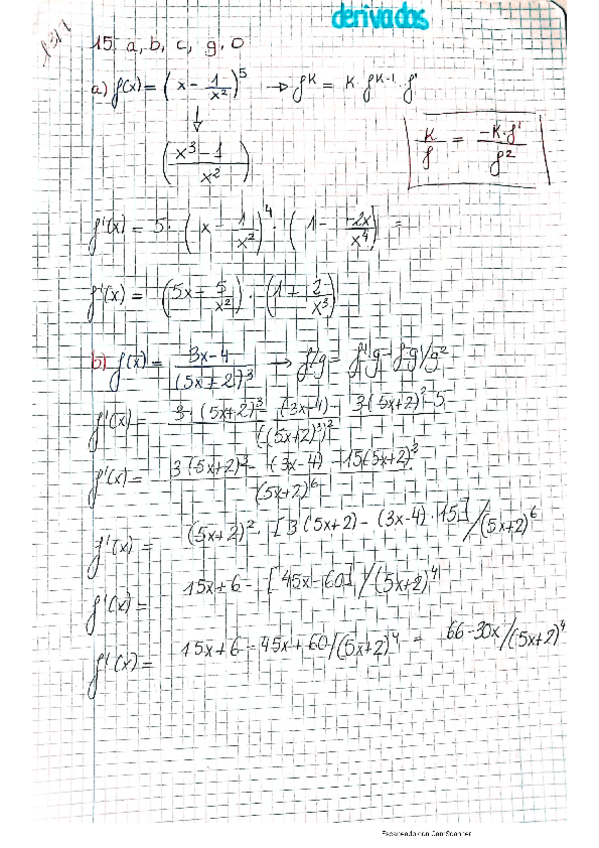 derivadas
15, a, b, c, g, o
a) f(x) = (x - 1/x²)⁵ → f^K = K · f^(K-1) · f'
↓
((x³ - 1)/x²)
K/f = (-K · f')/f²
f'(x) = 5 · (x - 1/x²)⁴ · (1 - (-2x)/x⁴) =
f'(x) = (5x - 5/x²) · (1 + 2/x³)
b) f(x) = (3x - 4)/(5x + 2)³ → f/g = f'·g - f·g'/g²
f'(x) = 3 · (5x+2)³ - (3x-4) · 3(5x+2)² · 5 / ((5x+2)³)²
f'(x) = 3(5x+2)³ - (3x-4) · 15(5x+2)² / (5x+2)⁶
f'(x) = (5x+2)² · [3(5x+2) - (3x-4) · 15] / (5x+2)⁶
f'(x) = 15x+6 - [45x-60] / (5x+2)⁴
f'(x) = 15x+6 - 45x+60/(5x+2)⁴ = 66-30x/(5x+2)⁴
Escaneado con CamScanner